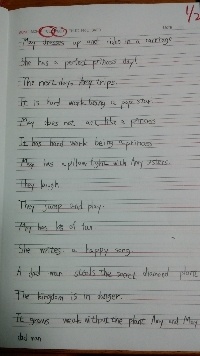 1/2
May dresses up and rides in a carriage
She has a perfect princess day!
The next day Amy trips.
It is hard work being a pop star
May does not act like a princess
It has hard work being a princess
May has a pillow fight with Amy sisters
They laugh.
They jump and play.
May has lots of fun
She writes a happy song.
A dad man steals the secret diamond plant
The kingdom is in danger.
It grows weak without the plant Amy and May
dad man